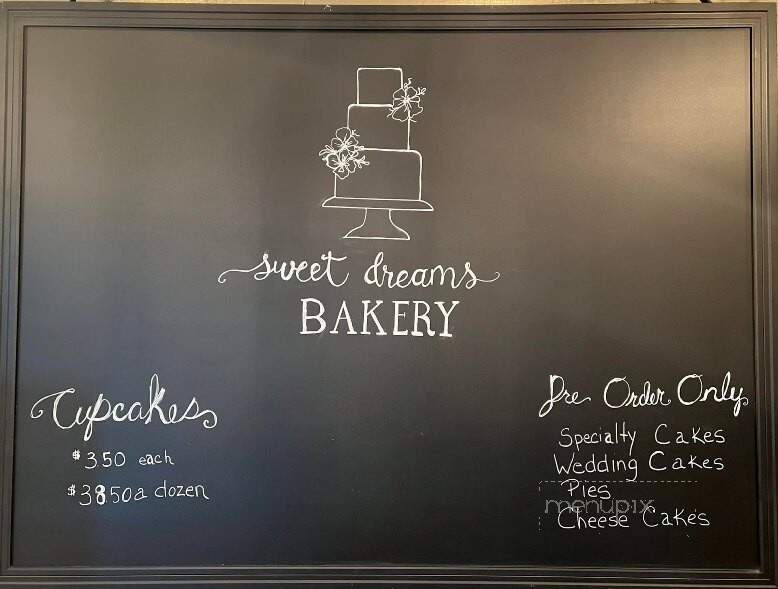 sweet dreams
BAKERY
Cupcakes
$3.50 each
$38.50 a dozen
Pre Order Only
Specialty Cakes
Wedding Cakes
Pies
menupix
Cheese Cakes